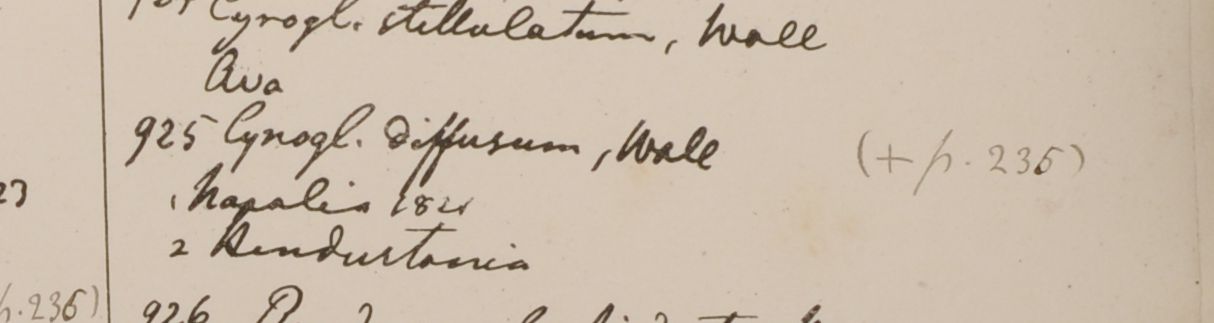 Cynogl. stellulatum, Wall
Ava
925 Cynogl. diffusum, Wall (+ p. 235)
1 Napalia 1821
23
2 Hindustania
p. 236)
926